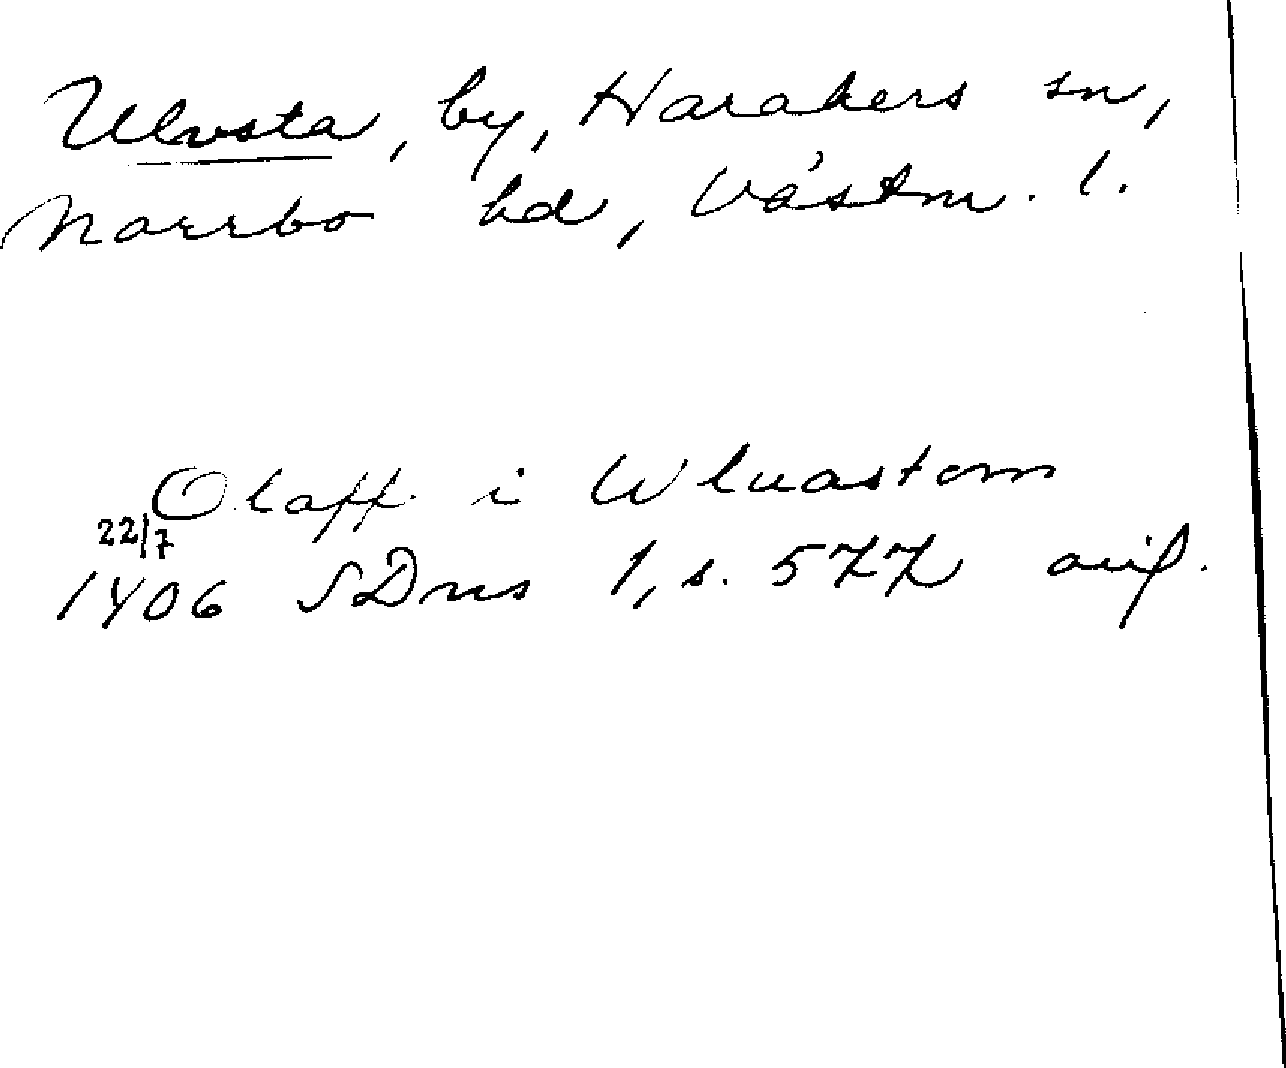 Ulvsta, by, Harakers sn,
Norrbo hd, Västm. l.
Olaff i Wluastom
22/7
1406 SDns 1, s. 577 avif.